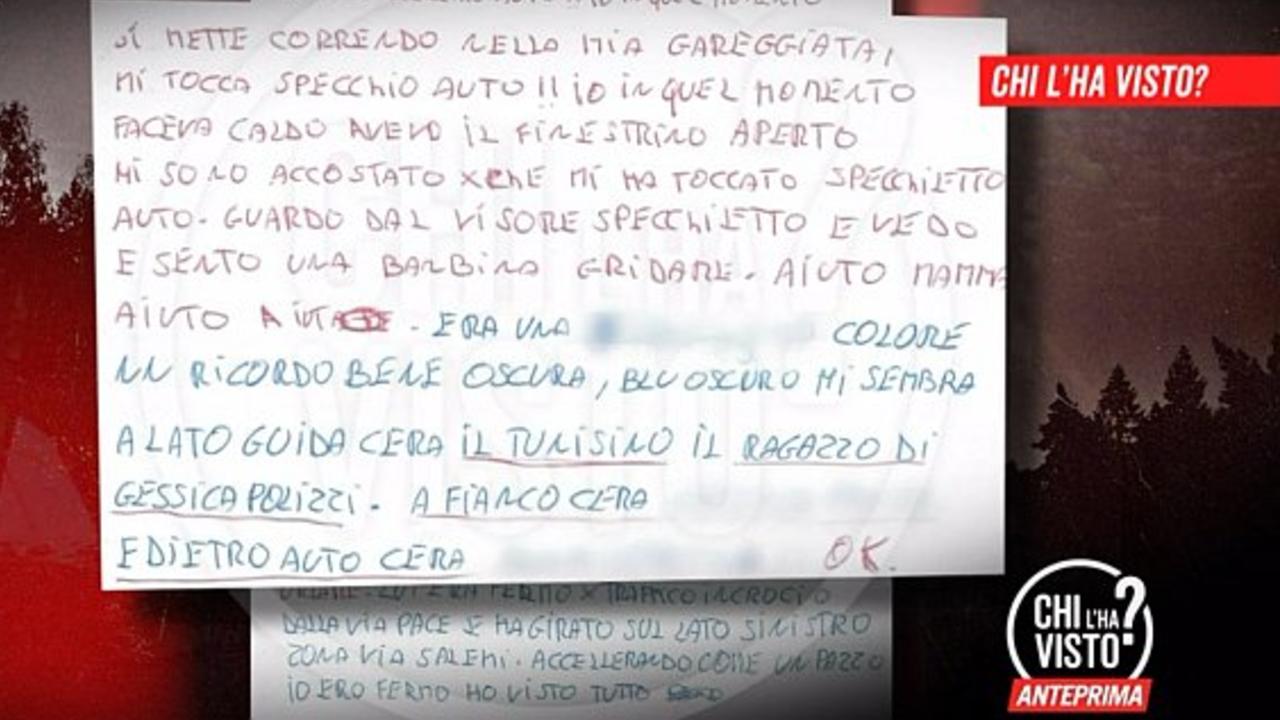 SI METTE CORRENDO NELLA MIA GAREGGIATA,
MI TOCCA SPECCHIO AUTO !! IO IN QUEL MOMENTO
FACEVA CALDO AVEVO IL FINESTRINO APERTO
MI SONO ACCOSTATO XCHE MI HA TOCCATO SPECCHIETTO
AUTO. GUARDO DAL VISORE SPECCHIETTO E VEDO
E SENTO UNA BAMBINA GRIDARE. AIUTO MAMMA
AIUTO . ERA UNA COLORE
NN RICORDO BENE OSCURA, BLU OSCURO MI SEMBRA
A LATO GUIDA CERA IL TUNISINO IL RAGAZZO DI
GESSICA POLIZZI. A FIANCO CERA
E DIETRO AUTO CERA OK.
ERA FERMO X TRAFFICO INCROCIO
DALLA VIA PACE SE HA GIRATO SUL LATO SINISTRO
ZONA VIA SALEMI. ACCELLERANDO COME UN PAZZO
IO ERO FERMO HO VISTO TUTTO
CHI L'HA VISTO?
CHI L'HA VISTO?
ANTEPRIMA